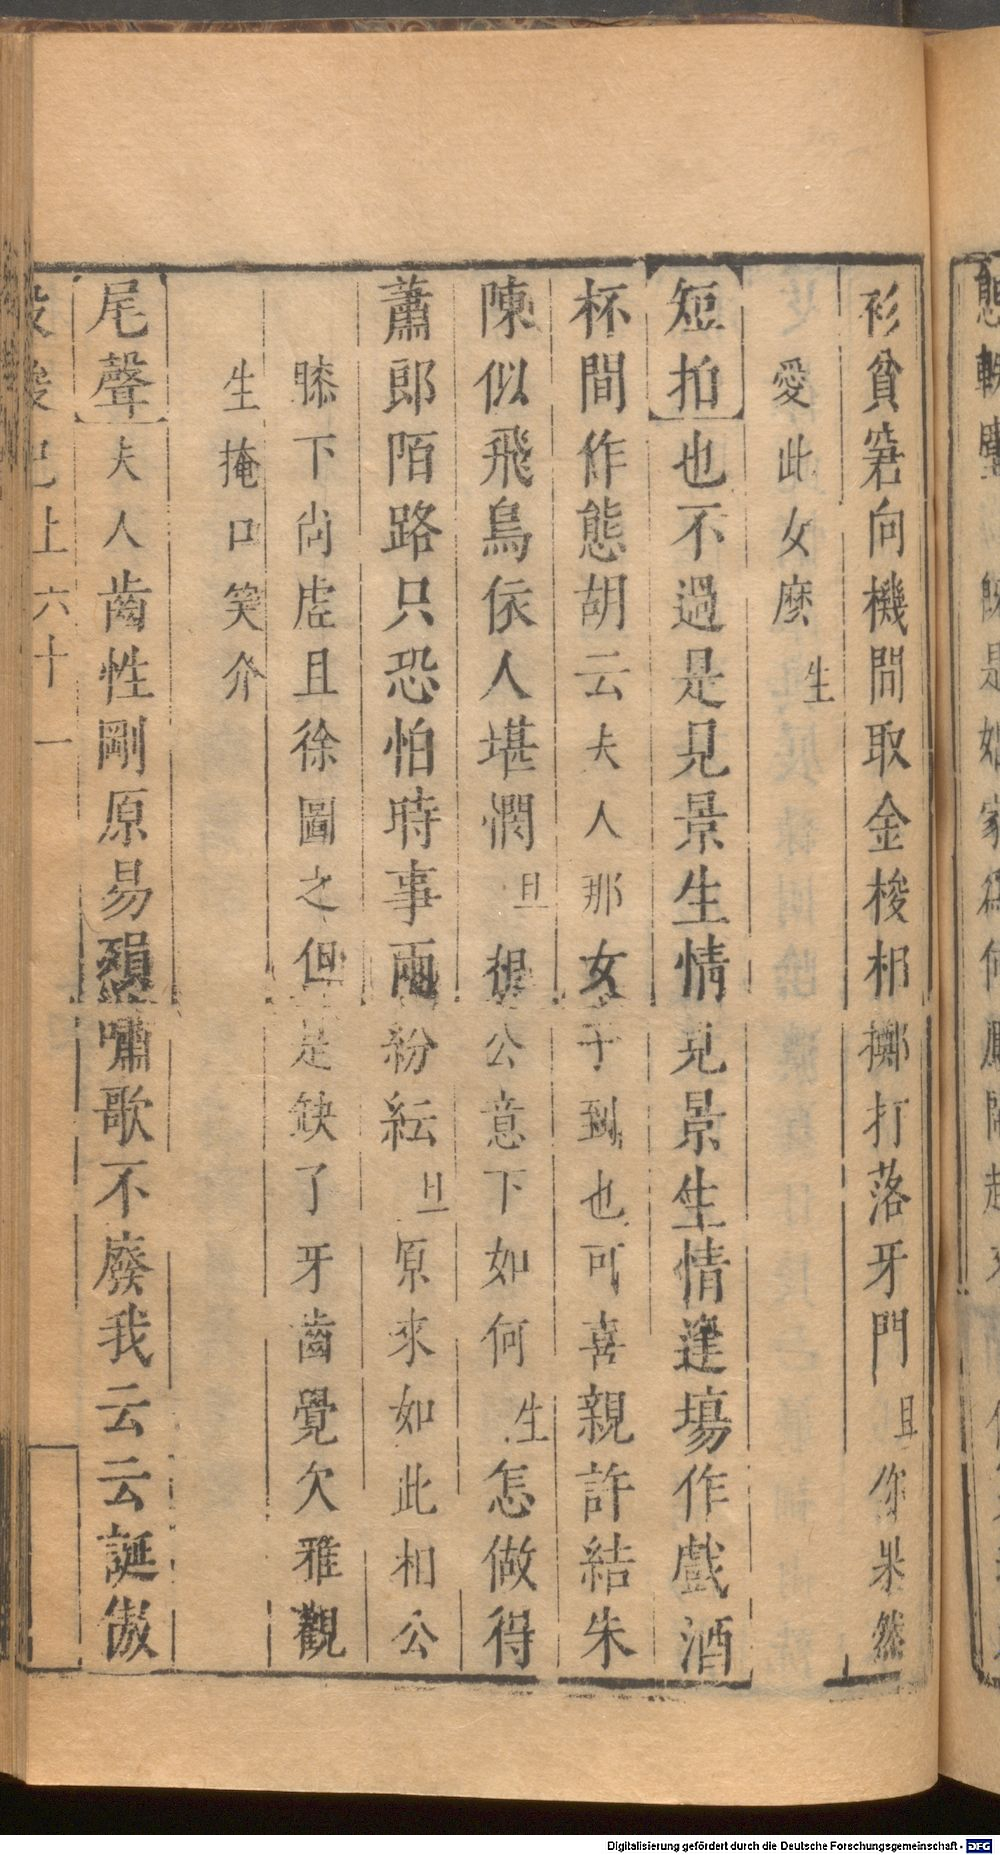 衫貧窘向機間取金梭相擲打落牙門旦你果然
愛此女麽生
短拍也不過是見景生情見景生情逢塲作戲酒
杯間作態胡云夫人那女子到也可喜親許結朱
陳似飛鳥依人堪憫旦相公意下如何生怎做得
蕭郎陌路只恐怕時事兩紛紜旦原來如此相公
膝下尚虛且徐圖之但是缺了牙齒覺欠雅觀
生掩口笑介
尾聲夫人齒性剛原易損嘯歌不廢我云云誕傲
上六十一
Digitalisierung gefördert durch die Deutsche Forschungsgemeinschaft - DFG